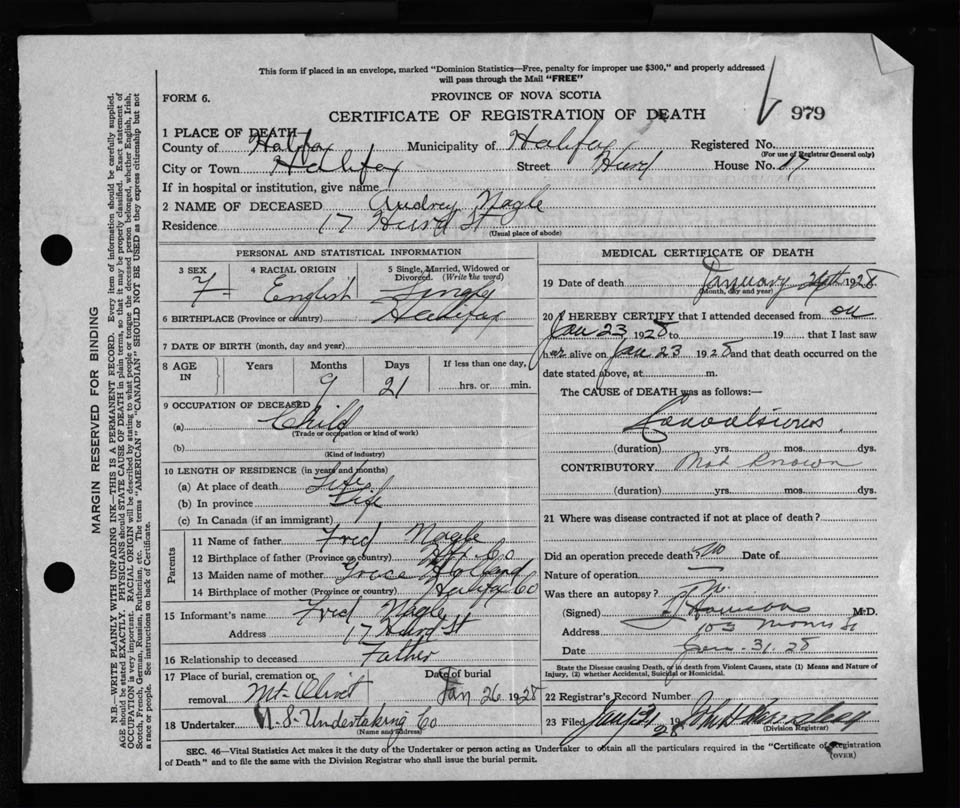 This form if placed in an envelope, marked "Dominion Statistics—Free, penalty for improper use $300," and properly addressed
will pass through the Mail "FREE"
FORM 6.
PROVINCE OF NOVA SCOTIA
979
CERTIFICATE OF REGISTRATION OF DEATH
1 PLACE OF DEATH
County of Halifax Municipality of Halifax Registered No.
(For use of Registrar General only)
City or Town Halifax Street Hurd House No. 17
If in hospital or institution, give name
2 NAME OF DECEASED Audrey Nagle
Residence 17 Hurd St
(Usual place of abode)
PERSONAL AND STATISTICAL INFORMATION
3 SEX 4 RACIAL ORIGIN 5 Single, Married, Widowed or
Divorced. (Write the word)
F English Single
6 BIRTHPLACE (Province or country) Halifax
7 DATE OF BIRTH (month, day and year)
8 AGE IN Years Months Days If less than one day,
9 21 hrs. or min.
9 OCCUPATION OF DECEASED
(a) Child
(Trade or occupation or kind of work)
(b)
(Kind of industry)
10 LENGTH OF RESIDENCE (in years and months)
(a) At place of death Life
(b) In province Life
(c) In Canada (if an immigrant)
Parents
11 Name of father Fred Nagle
12 Birthplace of father (Province or country) Hfx Co
13 Maiden name of mother Grace Holland
14 Birthplace of mother (Province or country) Halifax Co
15 Informant's name Fred Nagle
Address 17 Hurd St
16 Relationship to deceased Father
17 Place of burial, cremation or Date of burial
removal Mt Olivet Jan 26 1928
18 Undertaker N.S. Undertaking Co
(Name and address)
MEDICAL CERTIFICATE OF DEATH
19 Date of death January 24th 1928
(Month, day and year)
20 I HEREBY CERTIFY that I attended deceased from on
Jan 23 1928 to 19 that I last saw
her alive on Jan 23 1928 and that death occurred on the
date stated above, at m.
The CAUSE of DEATH was as follows:
Convulsions.
(duration) yrs. mos. dys.
CONTRIBUTORY Not known
(duration) yrs. mos. dys.
21 Where was disease contracted if not at place of death?
Did an operation precede death? No Date of
Nature of operation
Was there an autopsy? No.
(Signed) M.D.
Address 103 Morris St
Date Jan. 31. 28
State the Disease causing Death, or in death from Violent Causes, state (1) Means and Nature of
Injury, (2) whether Accidental, Suicidal or Homicidal.
22 Registrar's Record Number
23 Filed 19 28
(Division Registrar)
SEC. 46—Vital Statistics Act makes it the duty of the Undertaker or person acting as Undertaker to obtain all the particulars required in the "Certificate of Registration
of Death" and to file the same with the Division Registrar who shall issue the burial permit.
(OVER)
MARGIN RESERVED FOR BINDING
N.B.—WRITE PLAINLY WITH UNFADING INK—THIS IS A PERMANENT RECORD. Every item of information should be carefully supplied.
AGE should be stated EXACTLY. PHYSICIANS should STATE CAUSE OF DEATH in plain terms, so that it may be properly classified. Exact statement of
OCCUPATION is very important. RACIAL ORIGIN will be described by stating to what people or tongue the deceased person belonged, whether English, Irish,
Scotch, French, German, Russian, Ruthenian, etc. The terms "AMERICAN" or "CANADIAN" SHOULD NOT BE USED as they express citizenship but not
a race or people. See instructions on back of Certificate.